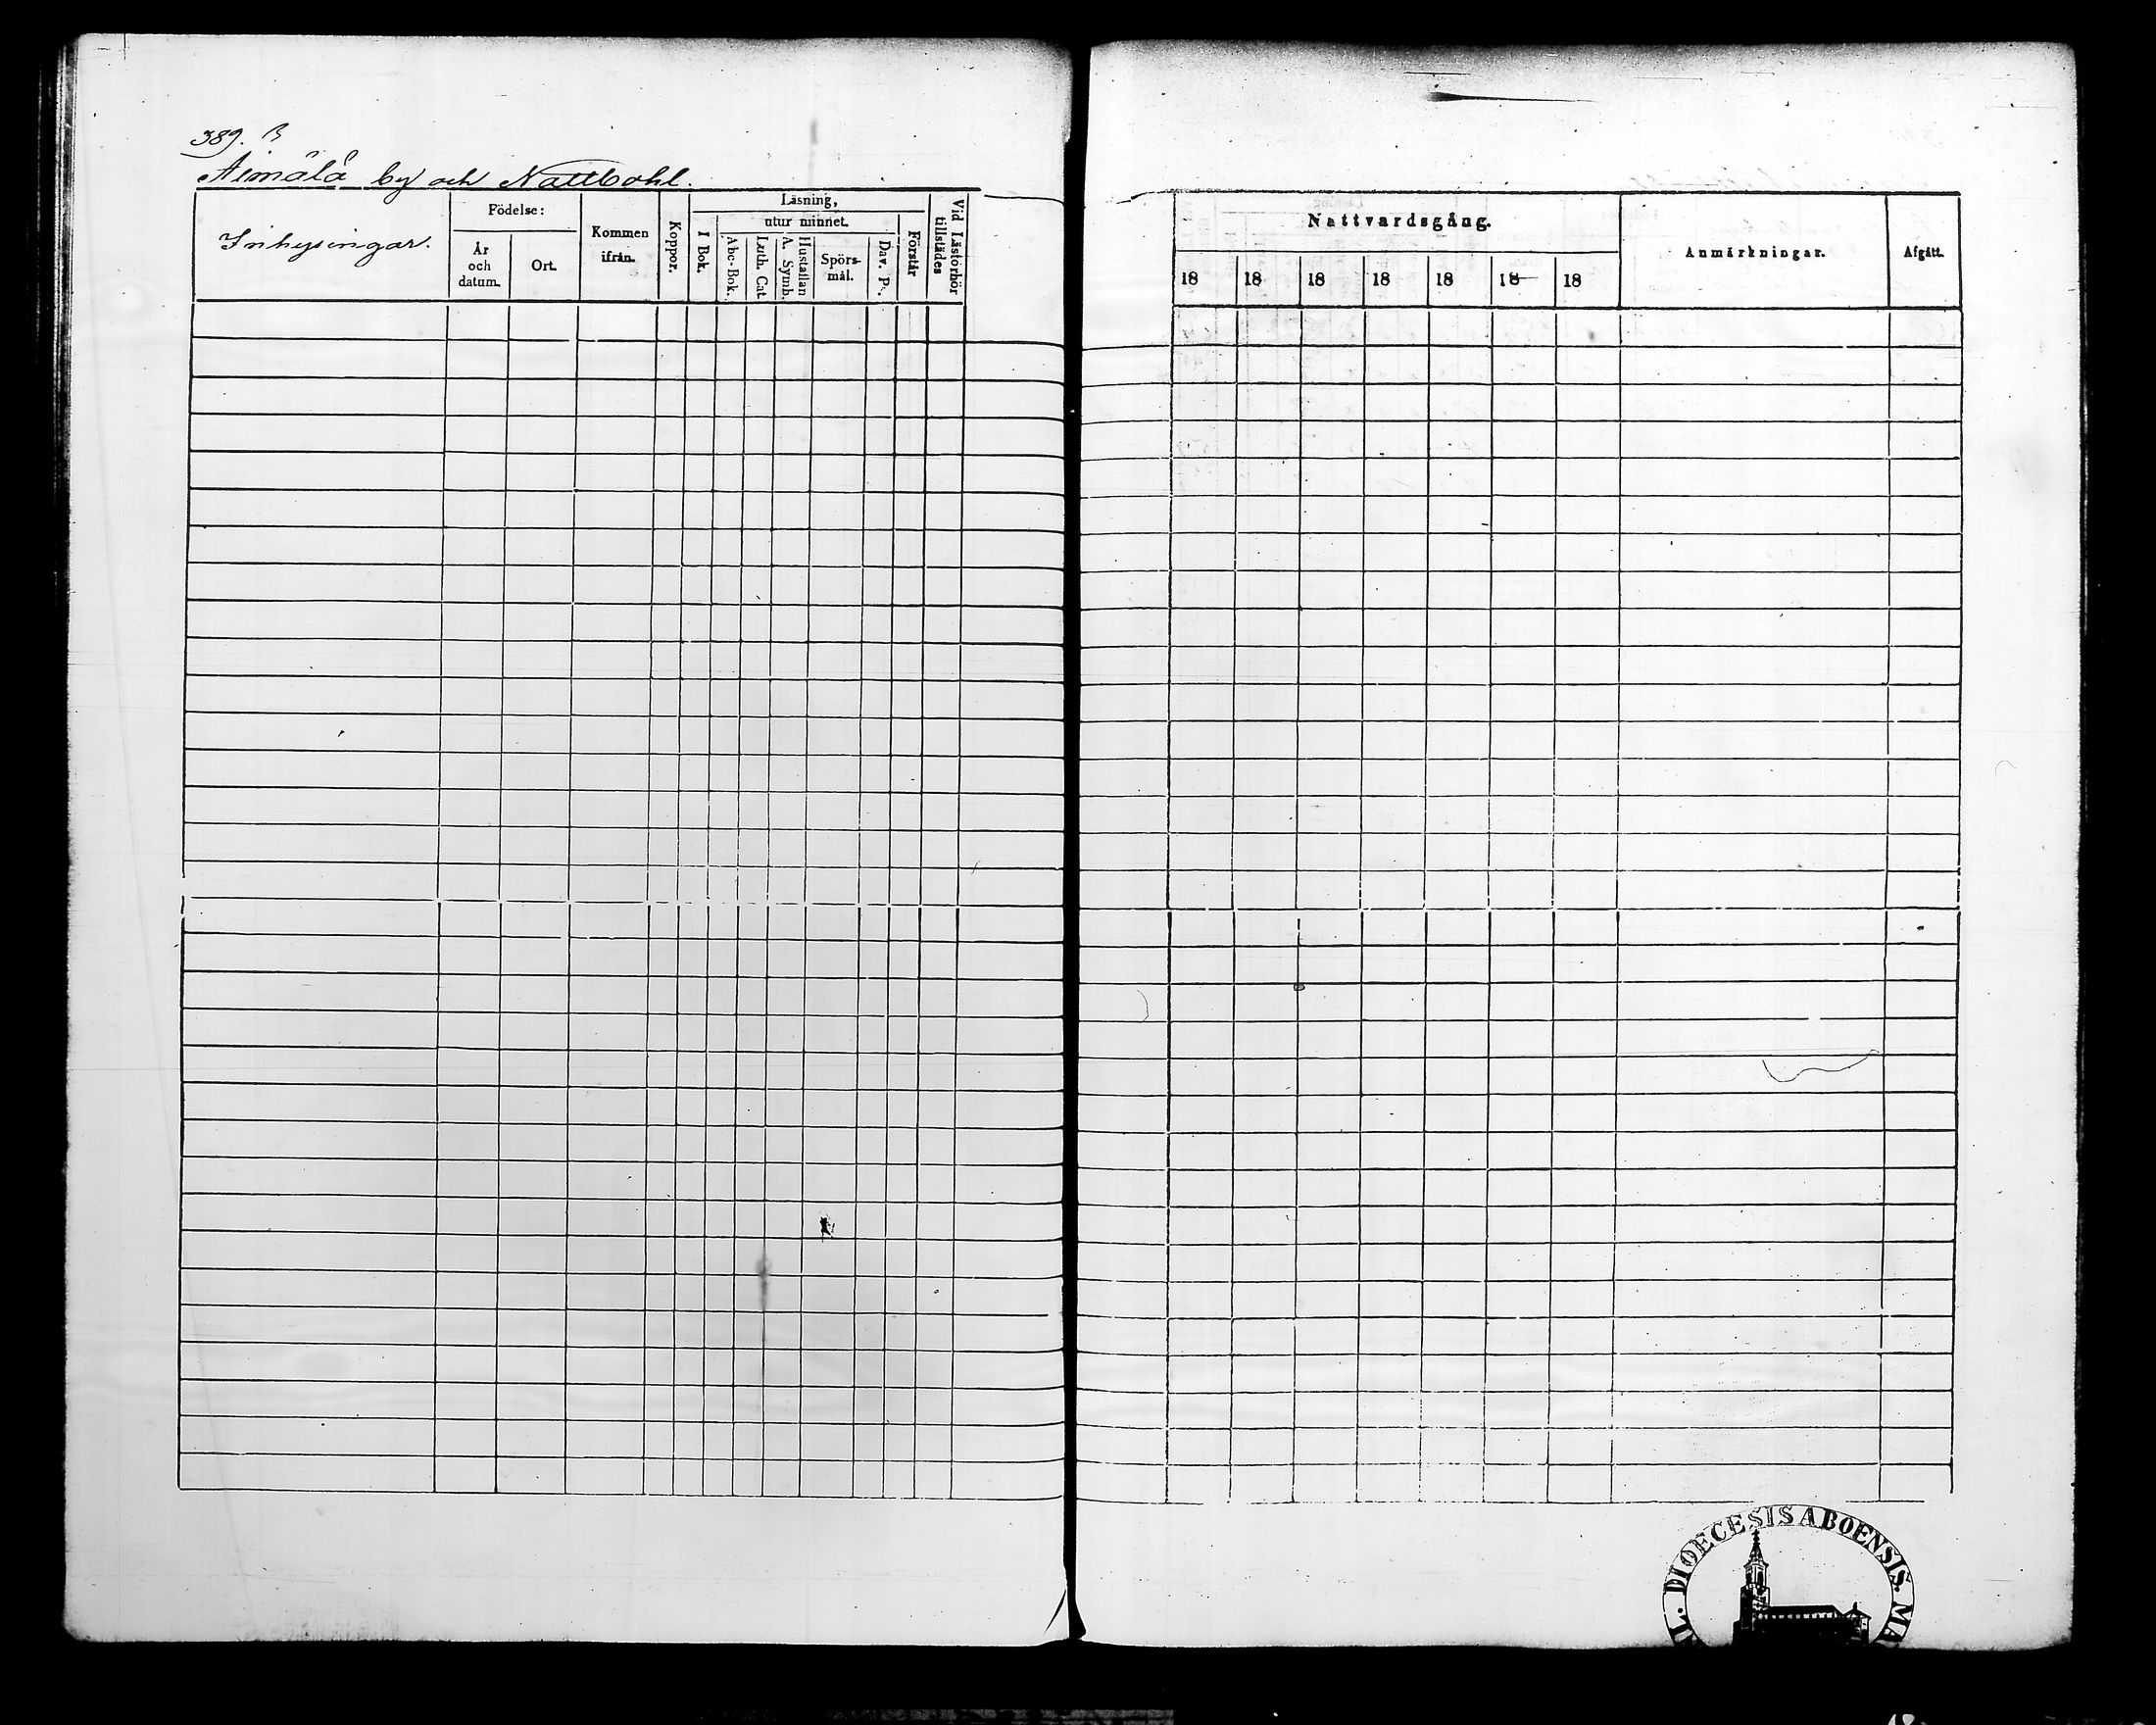 389. B
Aimälä by och Nattbohl.
Inhysingar.
Födelse:
År
och
datum.
Ort.
Kommen
ifrån.
Koppor.
Läsning,
I Bok.
utur minnet.
Abc-Bok.
Luth. Cat.
Hustaflan
A. Symb.
Spörs-
mål.
Dav. Ps.
Förstår
Vid Läsförhör
tillstädes
Nattvardsgång.
18 18 18 18 18 18 18
Anmärkningar.
Afgått.
DIOECESIS ABOENSIS.